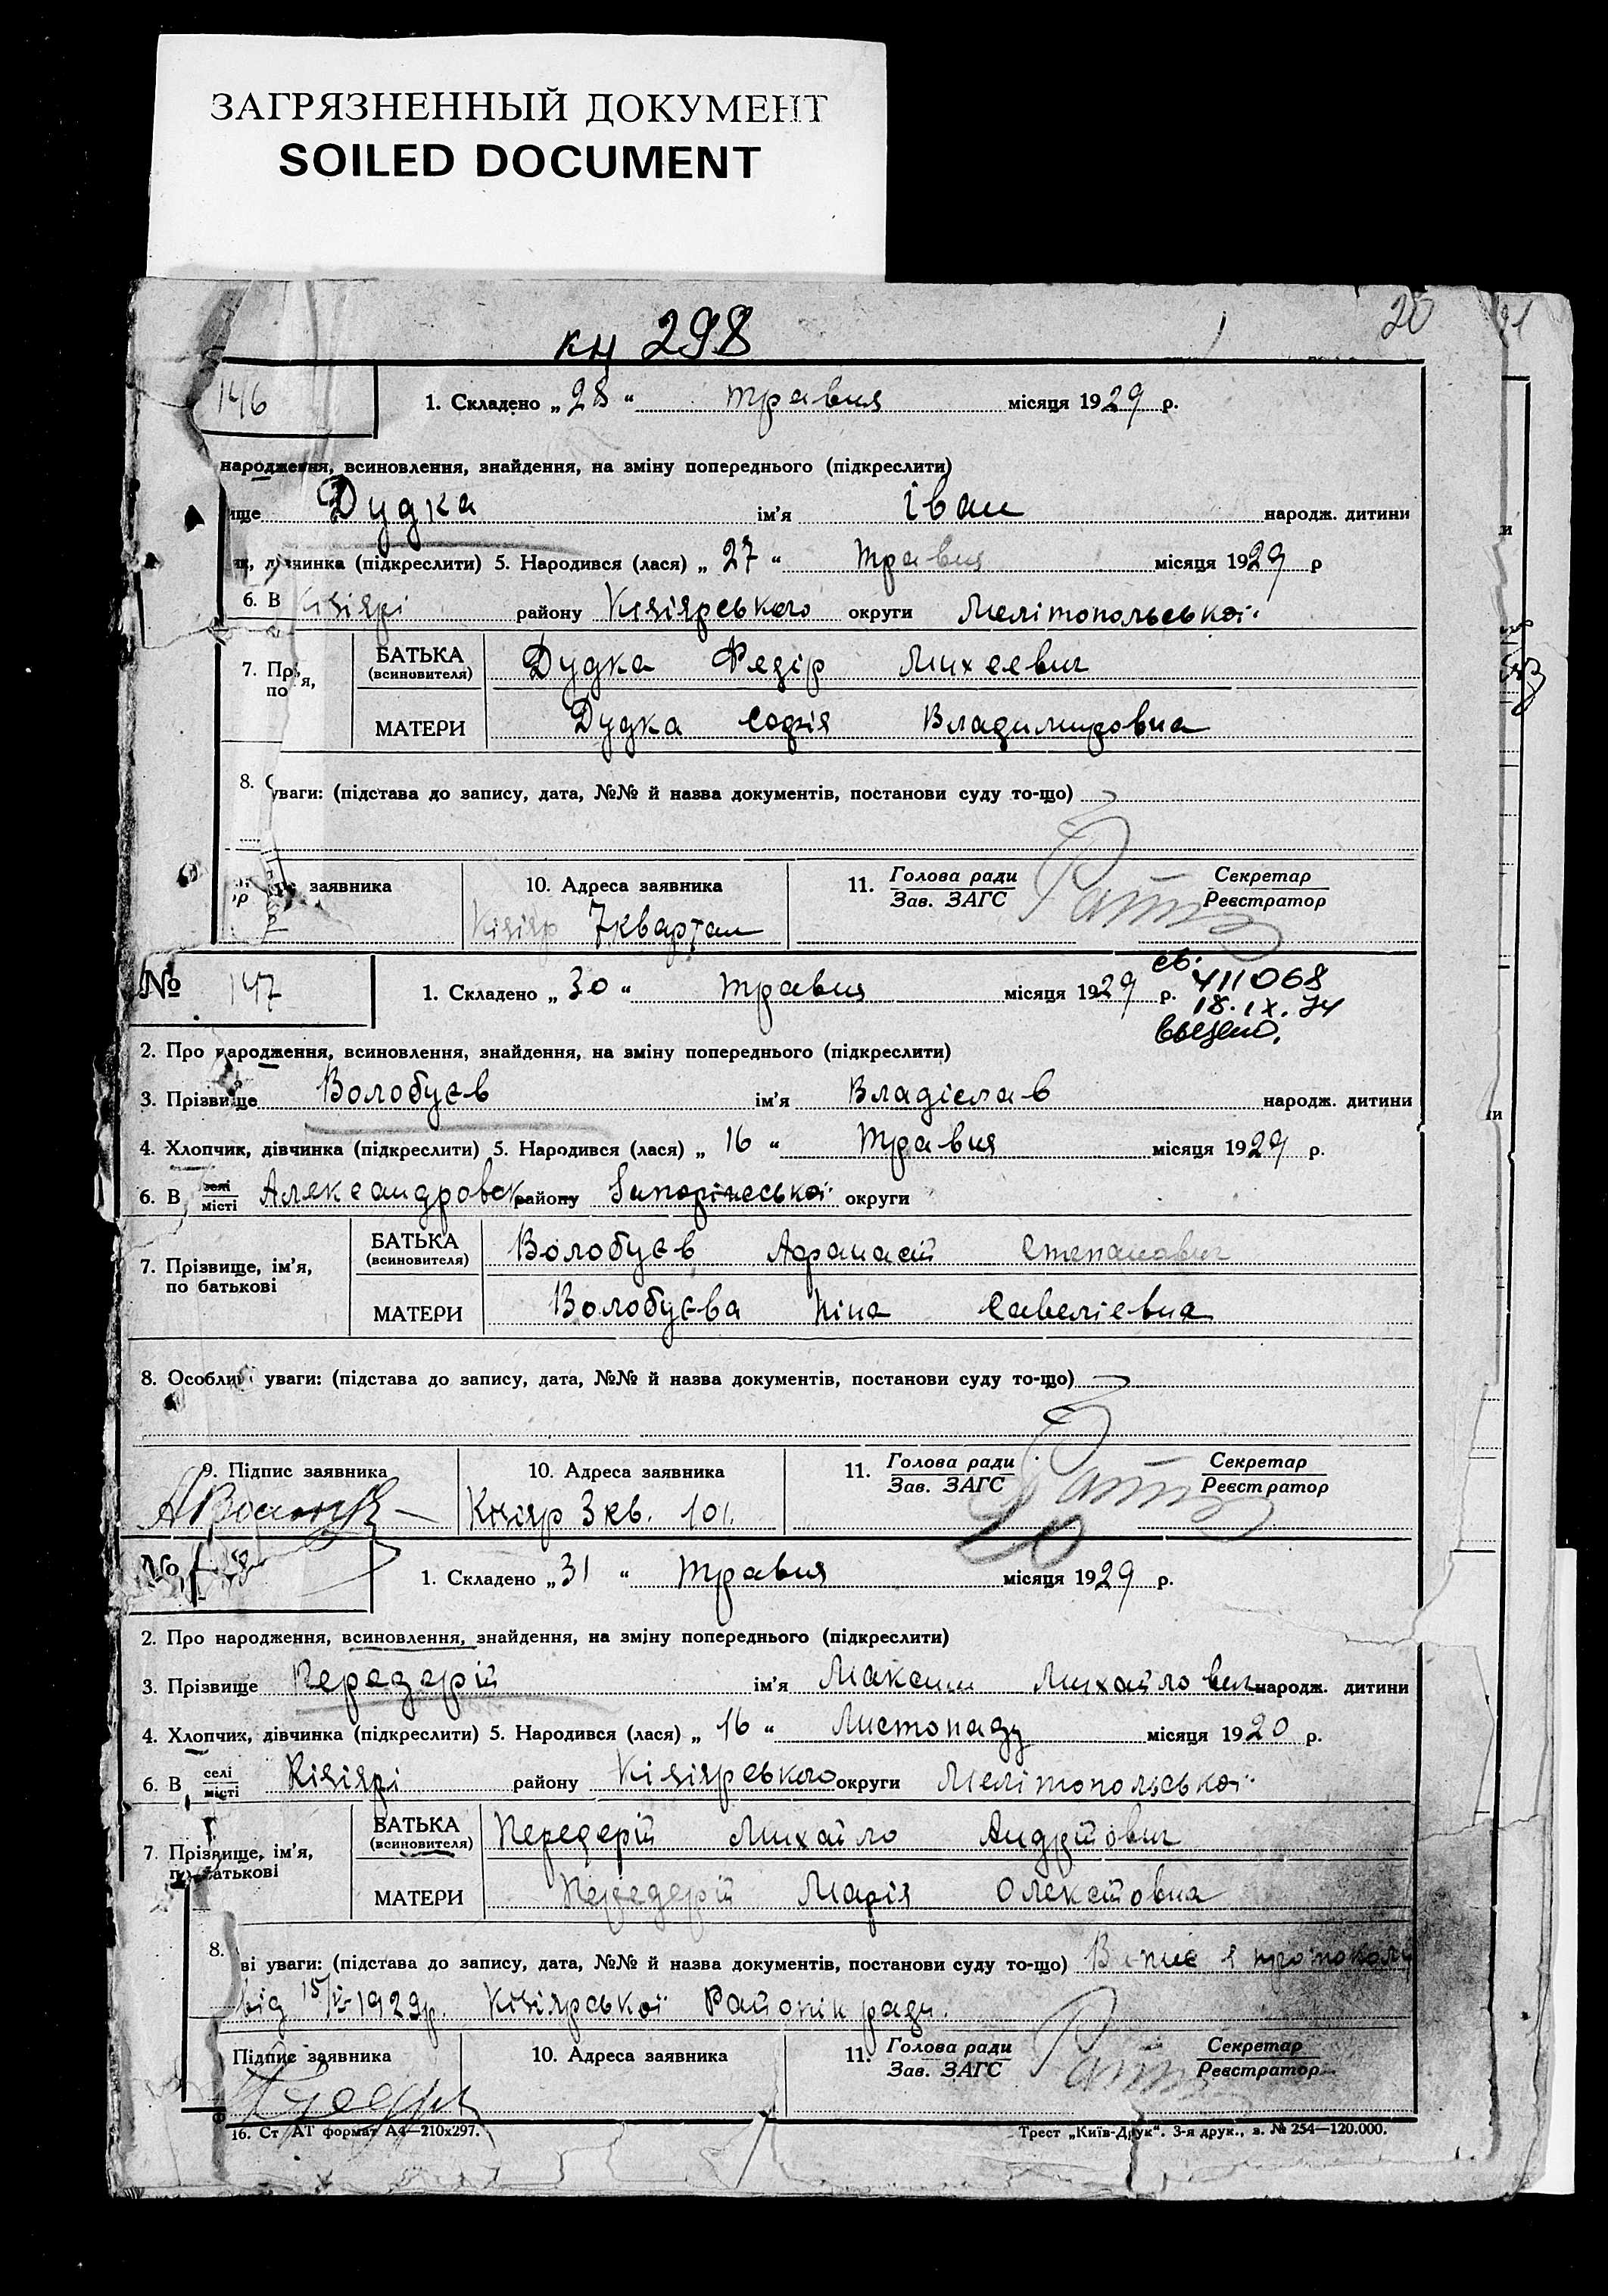 ЗАГРЯЗНЕННЫЙ ДОКУМЕНТ
SOILED DOCUMENT
кн 298
20
21
146
1. Складено „ 28 “ травня місяця 1929 р.
народження, всиновлення, знайдення, на зміну попереднього (підкреслити)
ище Дудка ім'я Іван народж. дитини
(підкреслити) 5. Народився (лася) „ 27 “ травня місяця 1929 р
6. В Кізіярі району Кізіярського округи Мелітопольської
7. Пр я,
по
БАТЬКА
(всиновителя)
Дудка Федір Михеевич
МАТЕРИ
Дудка Софія Владимировна
8. уваги: (підстава до запису, дата, №№ й назва документів, постанови суду то-що)
заявника
10. Адреса заявника
Кізіяр 7 квартал
11. Голова ради
Зав. ЗАГС
Секретар
Реєстратор
№ 147
1. Складено „ 30 “ травня місяця 1929 р.
св.
411068
18.IX.74
2. Про народження, всиновлення, знайдення, на зміну попереднього (підкреслити)
3. Прізвище Волобуєв ім'я Владіслав народж. дитини
4. Хлопчик, дівчинка (підкреслити) 5. Народився (лася) „ 16 “ травня місяця 1929 р.
6. В селі
місті
Александровск району Запоріжської округи
7. Прізвище, ім'я,
по батькові
БАТЬКА
(всиновителя)
Волобуєв Афанасій Степанович
МАТЕРИ
Волобуєва Ніна Савеліевна
8. Особливі уваги: (підстава до запису, дата, №№ й назва документів, постанови суду то-що)
9. Підпис заявника
10. Адреса заявника
Кізіяр 3 кв. 101.
11. Голова ради
Зав. ЗАГС
Секретар
Реєстратор
№ 148
1. Складено „ 31 “ травня місяця 1929 р.
2. Про народження, всиновлення, знайдення, на зміну попереднього (підкреслити)
3. Прізвище Передерій ім'я Максим Михайлович народж. дитини
4. Хлопчик, дівчинка (підкреслити) 5. Народився (лася) „ 16 “ Листопаду місяця 1920 р.
6. В селі
місті
Кізіярі району Кізіярського округи Мелітопольської
7. Прізвище, ім'я,
по батькові
БАТЬКА
(всиновителя)
Передерій Михайло Андрійович
МАТЕРИ
Передерій Марія Олексіївна
8. ві уваги: (підстава до запису, дата, №№ й назва документів, постанови суду то-що) протоколу
від 1929р. Кізіярської ради.
Підпис заявника
10. Адреса заявника
11. Голова ради
Зав. ЗАГС
Секретар
Реєстратор
16. Ст АТ формат А4—210x297.
Трест „Київ-Друк“. 3-я друк., з. № 254—120.000.